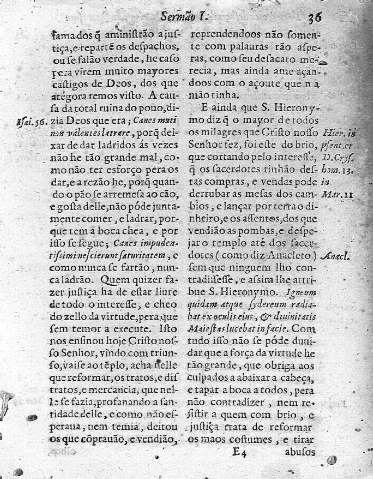 Sermão I.
36
famados q̃ aministrão a jus-
tiça, e reparte os despachos,
ou se falão verdade, he caso
pera virem muito mayores
castigos de Deos, dos que
atégora remos visto. A cau-
sa da total ruina do povo, di-
zia Deos que era; Canes muti
non valentes latrare, porq̃ dei-
xar de dar ladridos ás vezes
não he tão grande mal, co-
mo não ter esforço pera os
dar, e a rezão he, porq̃ quan-
do o pão se arremesa ao cão,
e gosta delle, não póde junta-
mente comer, e ladrar, por-
que tem a boca chea, e por
isso se segue; Canes impuden-
tissimi nescierunt saturitatem, e
como nunca se fartão, nun-
ca ladrão. Quem quizer fa-
zer justiça ha de estar livre
de todo o interesse, e cheo
do zello da virtude, pera, que
sem temor a execute. Isto
nos ensinou hoje Christo nos-
so Senhor, vindo com triun-
fo, vaise ao tẽplo, acha nelle
que reformar, os tratos, e dis
tratos, e mercancia, que nel-
le se fazia, profanando a san-
tidade delle, e como não es-
perava, nem temia, deitou
os que cõpravão, e vendião,
Isai. 56.
reprehendendoos não somen-
te com palauras tão áspe-
ras, como seu desacato me-
recia, mas ainda ame açan-
doos com o açoute que n a
mão tinha.
E ainda que S. Hierony-
mo diz q̃ o mayor de todos
os milagres que Christo nosso
Senhor fez, foi este do brio,
que cortando pelo interesse,
q̃ os sacerdotes tinhão des-
tas compras, e vendas pode
derrubar as mesas dos cam-
bios, e lançar por terra o di-
nheiro, e os assentos, dos que
vendião as pombas, e despe-
jaro templo até dos sacer-
dotes (como diz Anacleto)
sem que ninguem lho con-
tradissesse, e assim lhe atri-
bue S. Hieronymo. Igneum
quidam atque sydereum radia-
bat ex oculis eius, & divinitatis
Maiestas lucebat in facie. Com
tudo isso não se póde duui-
dar que a força da virtude he
tão grande, que obriga aos
culpados a abaixar a cabeça,
e tapar a boca a todos, pera
não contradizer, nem re-
sistir a quem com brio, e
justiça trata de reformar
os maos costumes, e tirar
Hier. in
D. Crys.
hom. 13.
in
Mar. 11
Anacl.
E4
abusos